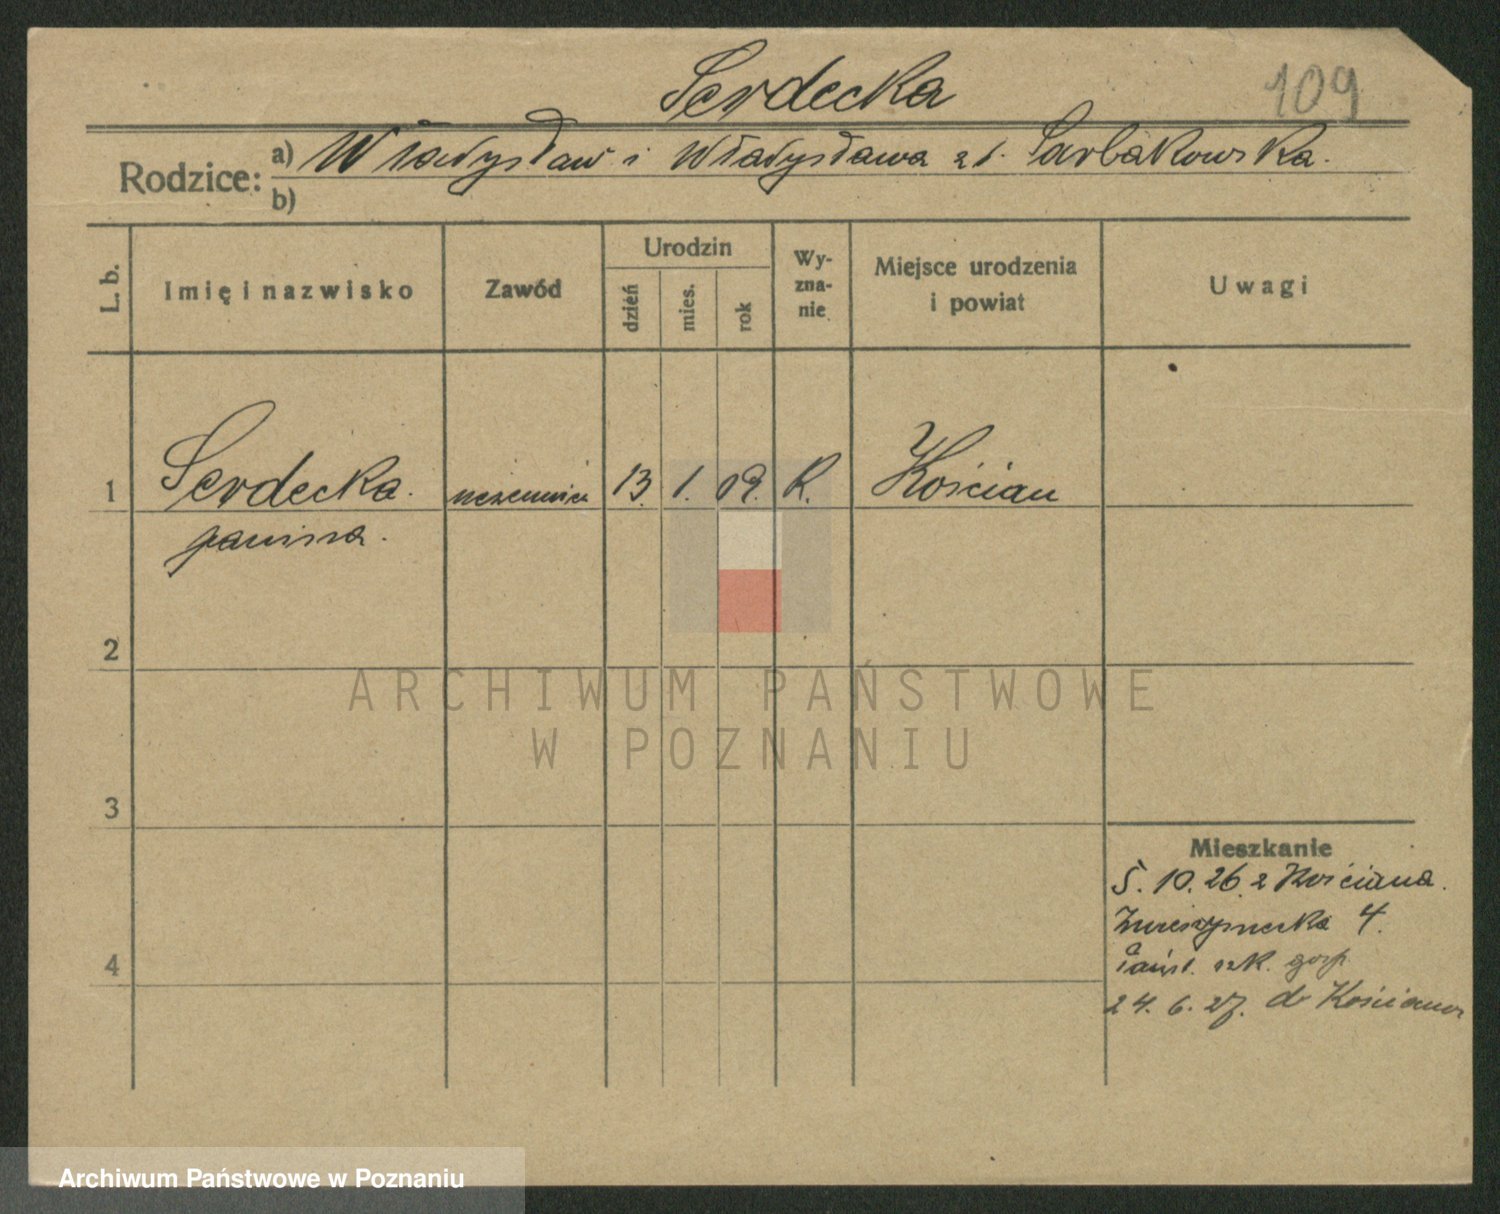 Serdecka 109
Rodzice: a) Władysław i Władysława z d. Sarbakowska.
b)
L. b. Imię i nazwisko Zawód Urodzin dzień mies. rok Wyznanie Miejsce urodzenia i powiat Uwagi
1 Serdecka. uczennica 13. 1. 09. k. Kościan
Janina.
2
ARCHIWUM PAŃSTWOWE
W POZNANIU
3
Mieszkanie
5. 10. 26 z Kościana.
Zwierzyniecka 4.
Państ. szk. gosp.
4
24. 6. 27. do Kościana
Archiwum Państwowe w Poznaniu